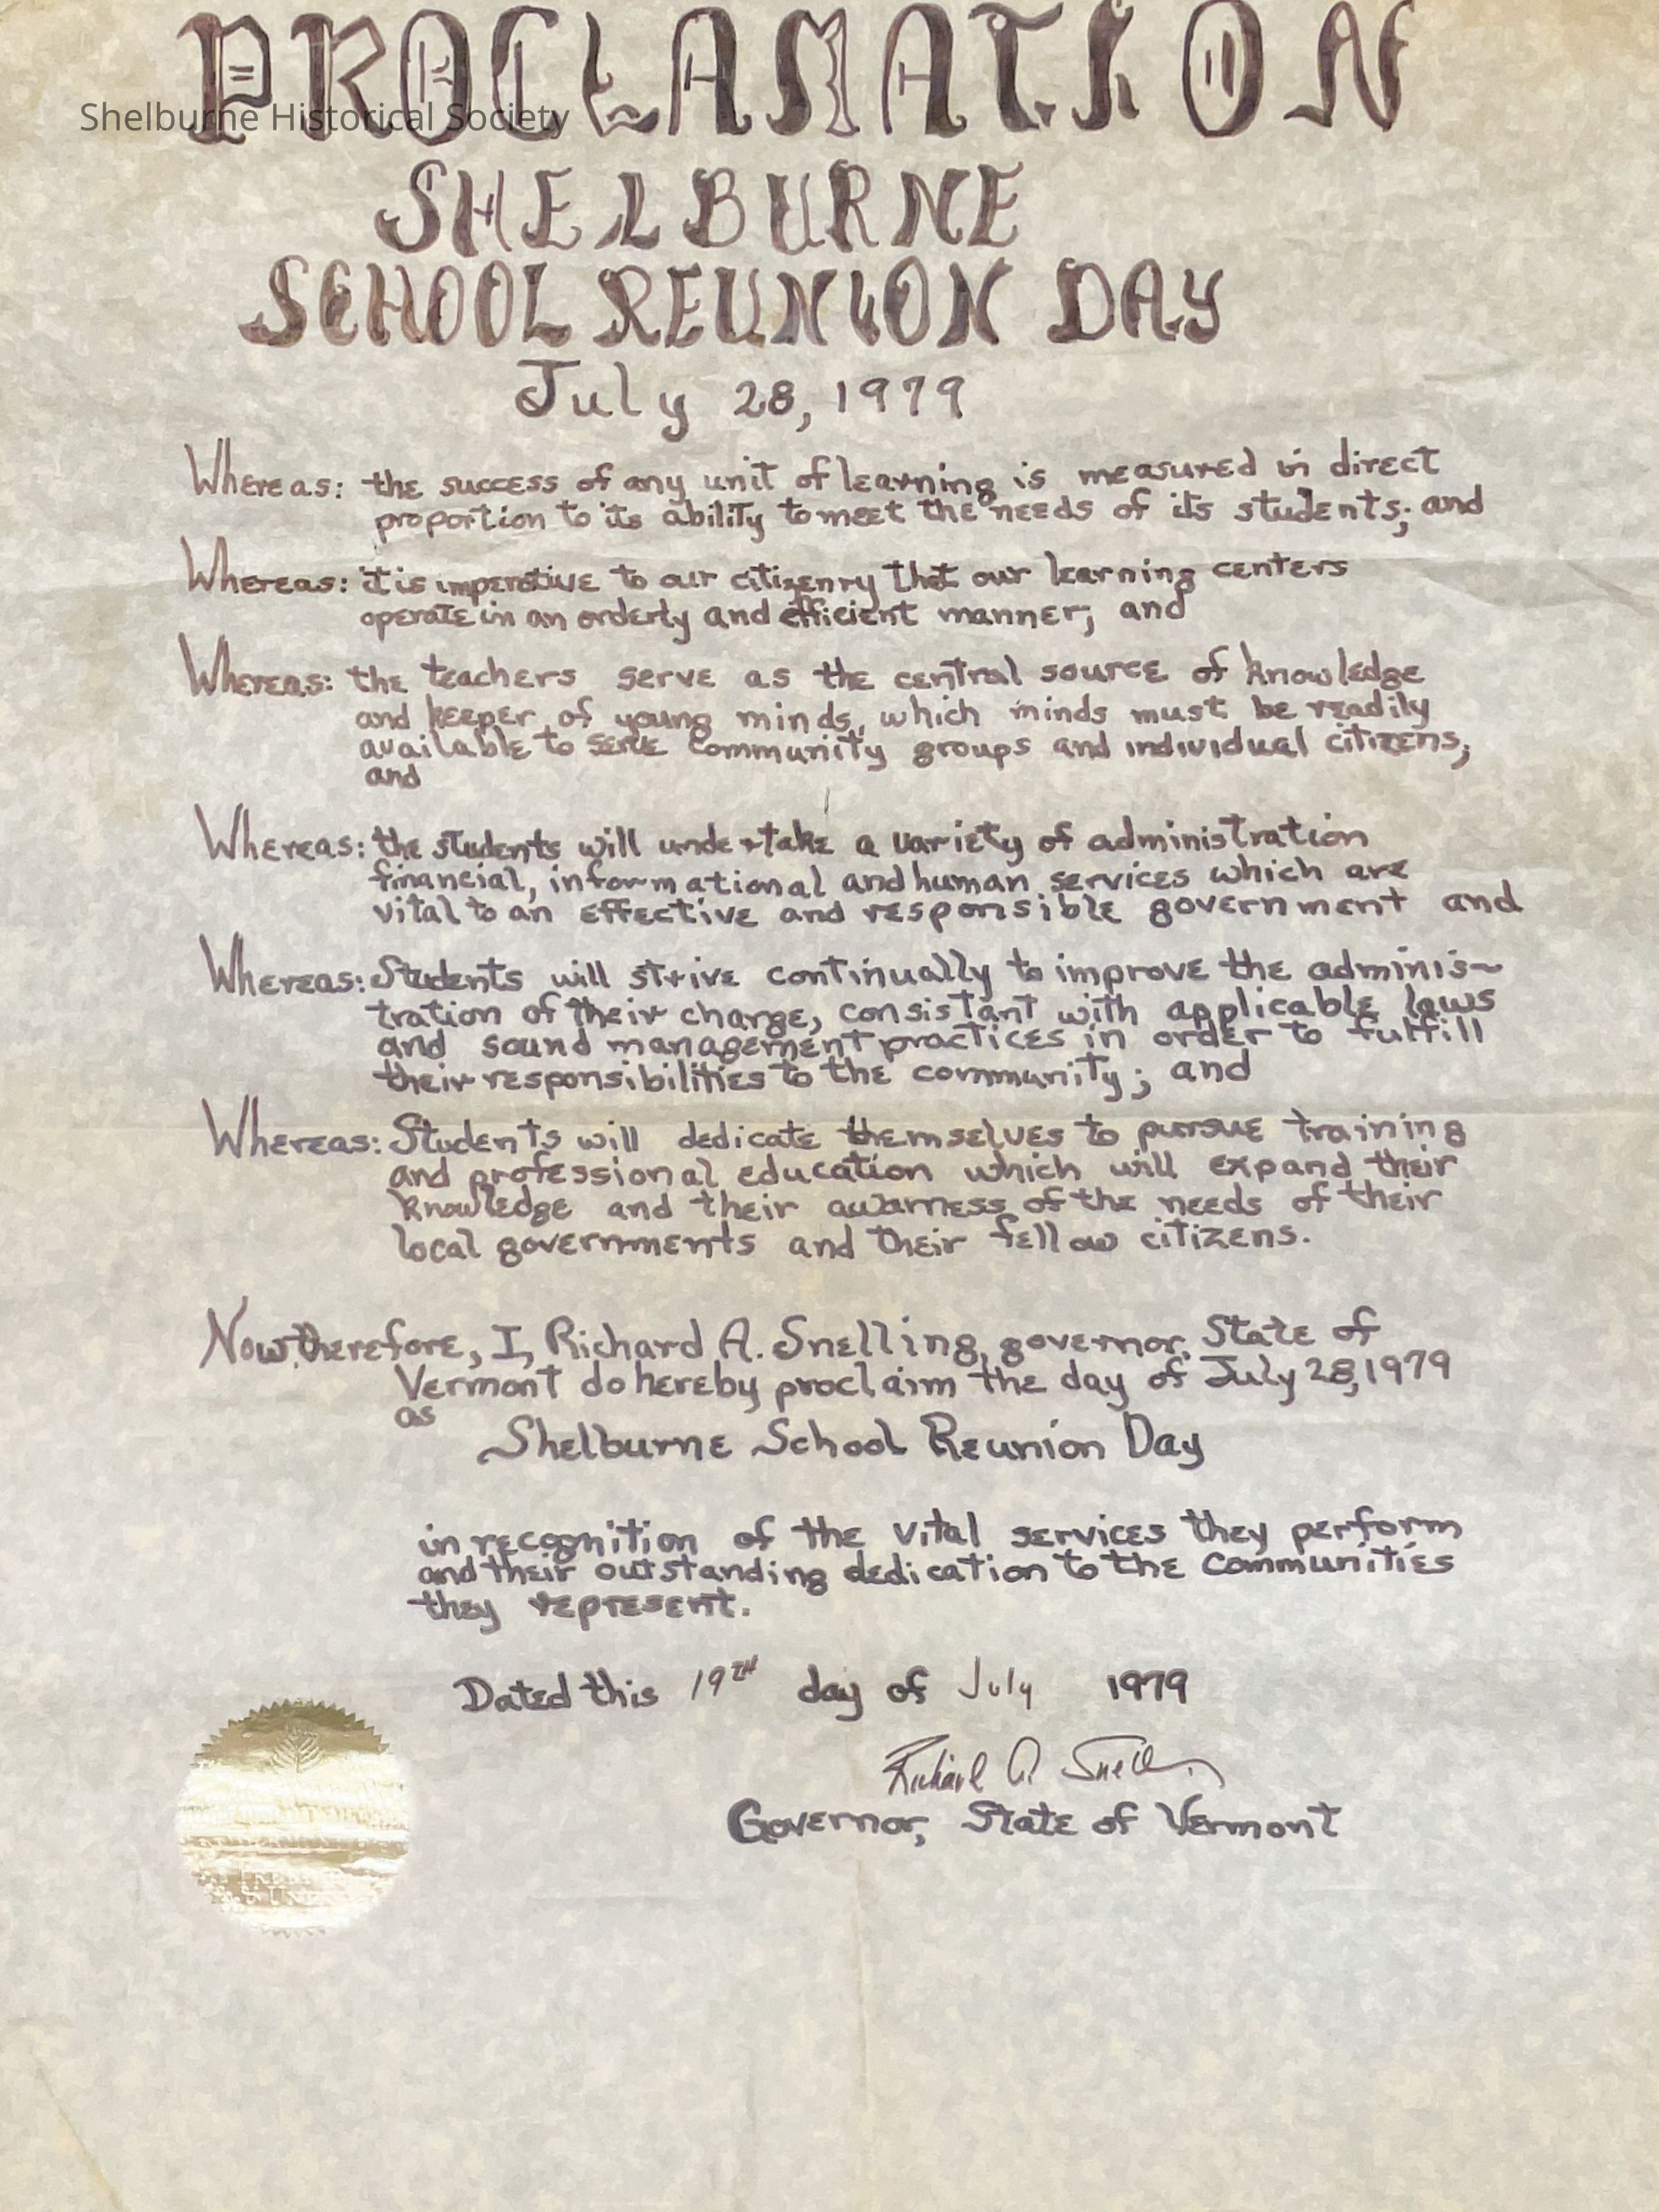 PROCLAMATION
Shelburne Historical Society
SHELBURNE
SCHOOL REUNION DAY
July 28, 1979
Whereas: the success of any unit of learning is measured in direct
proportion to its ability to meet the needs of its students; and
Whereas: it is imperative to our citizenry that our learning centers
operate in an orderly and efficient manner; and
Whereas: the teachers serve as the central source of knowledge
and keeper of young minds, which minds must be readily
available to serve community groups and individual citizens;
and
Whereas: the students will undertake a variety of administration
financial, informational and human services which are
vital to an effective and responsible government and
Whereas: Students will strive continually to improve the adminis~
tration of their charge, consistant with applicable laws
and sound management practices in order to fulfill
their responsibilities to the community; and
Whereas: Students will dedicate themselves to pursue training
and professional education which will expand their
knowledge and their awarness of the needs of their
local governments and their fellow citizens.
Now, therefore, I, Richard A. Snelling, governor, State of
Vermont do hereby proclaim the day of July 28, 1979
as
Shelburne School Reunion Day
in recognition of the vital services they perform
and their outstanding dedication to the communities
they represent.
Dated this 19TH day of July 1979
Richard A Snelling
Governor, State of Vermont